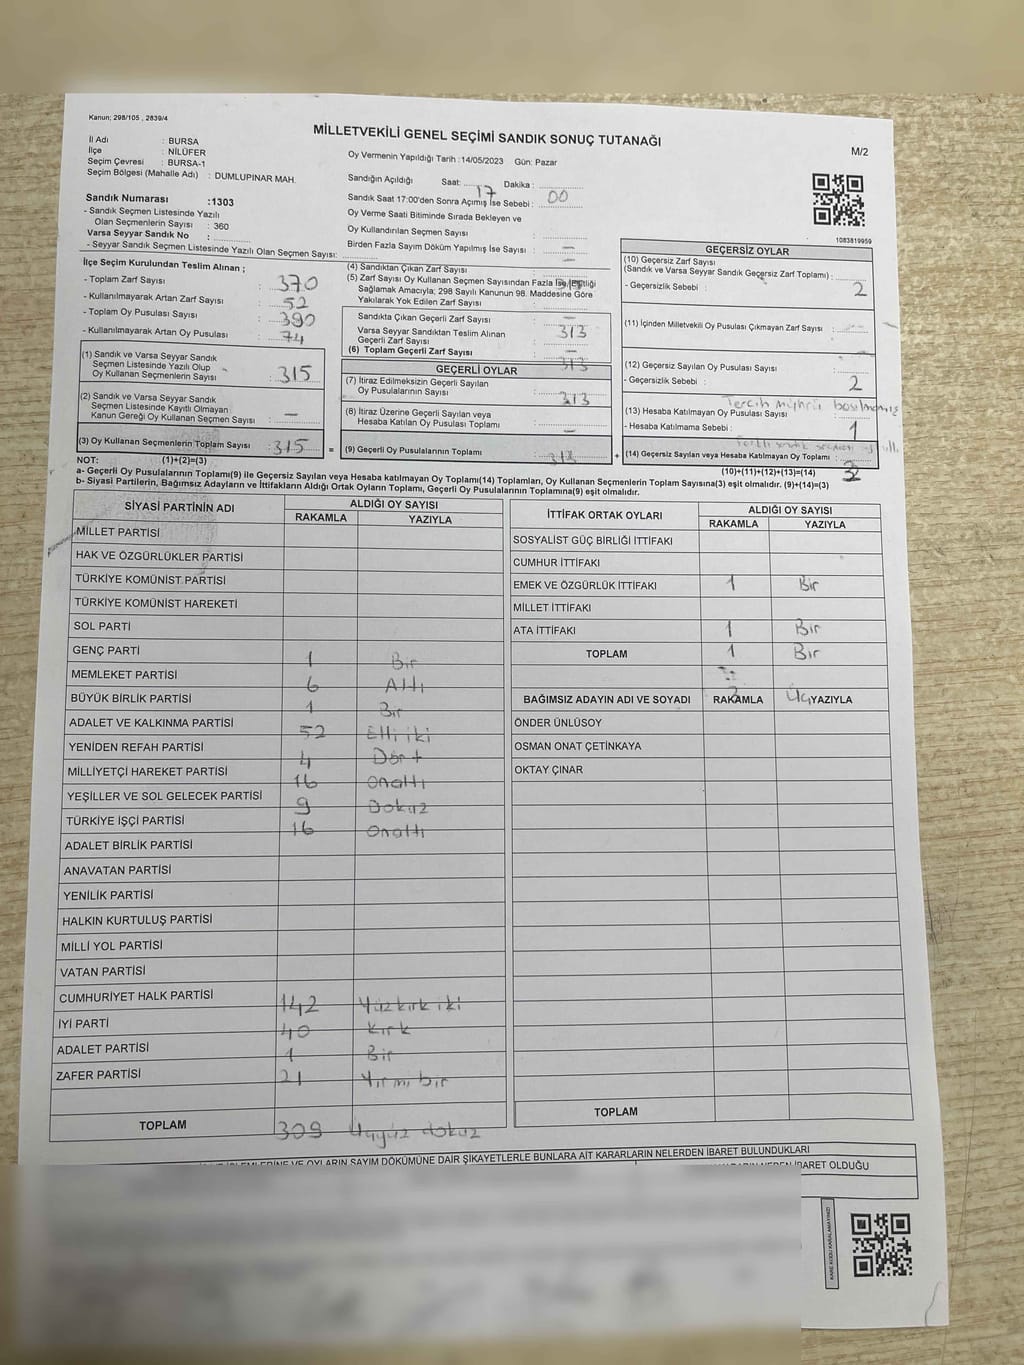 Kanun; 298/105 , 2839/4
MİLLETVEKİLİ GENEL SEÇİMİ SANDIK SONUÇ TUTANAĞI
M/2
İl Adı : BURSA
İlçe : NİLÜFER
Seçim Çevresi : BURSA-1
Seçim Bölgesi (Mahalle Adı) : DUMLUPINAR MAH.
Oy Vermenin Yapıldığı Tarih :14/05/2023 Gün: Pazar
Sandığın Açıldığı Saat: 17 Dakika : 00
Sandık Saat 17:00'den Sonra Açımış İse Sebebi :
Oy Verme Saati Bitiminde Sırada Bekleyen ve
Oy Kullandırılan Seçmen Sayısı : —
Birden Fazla Sayım Döküm Yapılmış İse Sayısı : —
Sandık Numarası :1303
- Sandık Seçmen Listesinde Yazılı
Olan Seçmenlerin Sayısı : 360
Varsa Seyyar Sandık No :
- Seyyar Sandık Seçmen Listesinde Yazılı Olan Seçmen Sayısı:
1083819959
İlçe Seçim Kurulundan Teslim Alınan ;
- Toplam Zarf Sayısı : 370
- Kullanılmayarak Artan Zarf Sayısı : 52
- Toplam Oy Pusulası Sayısı : 390
- Kullanılmayarak Artan Oy Pusulası : 74
(1) Sandık ve Varsa Seyyar Sandık
Seçmen Listesinde Yazılı Olup
Oy Kullanan Seçmenlerin Sayısı : 315
(2) Sandık ve Varsa Seyyar Sandık
Seçmen Listesinde Kayıtlı Olmayan
Kanun Gereği Oy Kullanan Seçmen Sayısı : —
(3) Oy Kullanan Seçmenlerin Toplam Sayısı : 315
(4) Sandıktan Çıkan Zarf Sayısı :
(5) Zarf Sayısı Oy Kullanan Seçmen Sayısından Fazla İse, Eşitliği
Sağlamak Amacıyla; 298 Sayılı Kanunun 98. Maddesine Göre
Yakılarak Yok Edilen Zarf Sayısı :
Sandıkta Çıkan Geçerli Zarf Sayısı : —
Varsa Seyyar Sandıktan Teslim Alınan 313
Geçerli Zarf Sayısı : —
(6) Toplam Geçerli Zarf Sayısı : 313
GEÇERLİ OYLAR
(7) İtiraz Edilmeksizin Geçerli Sayılan
Oy Pusulalarının Sayısı : 313
(8) İtiraz Üzerine Geçerli Sayılan veya
Hesaba Katılan Oy Pusulası Toplamı : —
= (9) Geçerli Oy Pusulalarının Toplamı : 313
GEÇERSİZ OYLAR
(10) Geçersiz Zarf Sayısı
(Sandık ve Varsa Seyyar Sandık Geçersiz Zarf Toplamı) :
- Geçersizlik Sebebi : 2
(11) İçinden Milletvekili Oy Pusulası Çıkmayan Zarf Sayısı :
(12) Geçersiz Sayılan Oy Pusulası Sayısı :
- Geçersizlik Sebebi : 2
Tercih mührü basılmamış
(13) Hesaba Katılmayan Oy Pusulası Sayısı :
- Hesaba Katılmama Sebebi : 1
+ (14) Geçersiz Sayılan veya Hesaba Katılmayan Oy Toplamı : 3
NOT: (1)+(2)=(3)
(10)+(11)+(12)+(13)=(14)
a- Geçerli Oy Pusulalarının Toplamı(9) ile Geçersiz Sayılan veya Hesaba Katılmayan Oy Toplamı(14) Toplamları, Oy Kullanan Seçmenlerin Toplam Sayısına(3) eşit olmalıdır. (9)+(14)=(3)
b- Siyasi Partilerin, Bağımsız Adayların ve İttifakların Aldığı Ortak Oyların Toplamı, Geçerli Oy Pusulalarının Toplamına(9) eşit olmalıdır.
SİYASİ PARTİNİN ADI ALDIĞI OY SAYISI
RAKAMLA YAZIYLA
MİLLET PARTİSİ
HAK VE ÖZGÜRLÜKLER PARTİSİ
TÜRKİYE KOMÜNİST PARTİSİ
TÜRKİYE KOMÜNİST HAREKETİ
SOL PARTİ
GENÇ PARTİ 1 Bir
MEMLEKET PARTİSİ 6 Altı
BÜYÜK BİRLİK PARTİSİ 1 Bir
ADALET VE KALKINMA PARTİSİ 52 Elli iki
YENİDEN REFAH PARTİSİ 4 Dört
MİLLİYETÇİ HAREKET PARTİSİ 16 Onaltı
YEŞİLLER VE SOL GELECEK PARTİSİ 9 Dokuz
TÜRKİYE İŞÇİ PARTİSİ 16 Onaltı
ADALET BİRLİK PARTİSİ
ANAVATAN PARTİSİ
YENİLİK PARTİSİ
HALKIN KURTULUŞ PARTİSİ
MİLLİ YOL PARTİSİ
VATAN PARTİSİ
CUMHURİYET HALK PARTİSİ 142 Yüzkırk iki
İYİ PARTİ 40 Kırk
ADALET PARTİSİ 1 Bir
ZAFER PARTİSİ 21 Yirmi bir
TOPLAM 309 Üçyüz dokuz
İTTİFAK ORTAK OYLARI ALDIĞI OY SAYISI
RAKAMLA YAZIYLA
SOSYALİST GÜÇ BİRLİĞİ İTTİFAKI
CUMHUR İTTİFAKI
EMEK VE ÖZGÜRLÜK İTTİFAKI 1 Bir
MİLLET İTTİFAKI
ATA İTTİFAKI 1 Bir
TOPLAM 1 Bir
BAĞIMSIZ ADAYIN ADI VE SOYADI RAKAMLA YAZIYLA
3 Üç
ÖNDER ÜNLÜSOY
OSMAN ONAT ÇETİNKAYA
OKTAY ÇINAR
TOPLAM
İŞLEMLERİNE VE OYLARIN SAYIM DÖKÜMÜNE DAİR ŞİKAYETLERLE BUNLARA AİT KARARLARIN NELERDEN İBARET BULUNDUKLARI
NEDEN İBARET OLDUĞU
KARE KODU KARALAMAYINIZ!